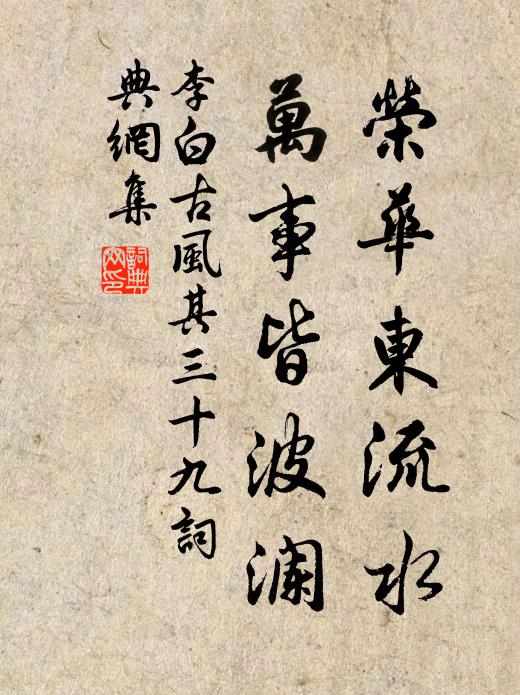 榮華東流水
萬事皆波澜
李白古風其三十九詞
典網集
詞典
网印